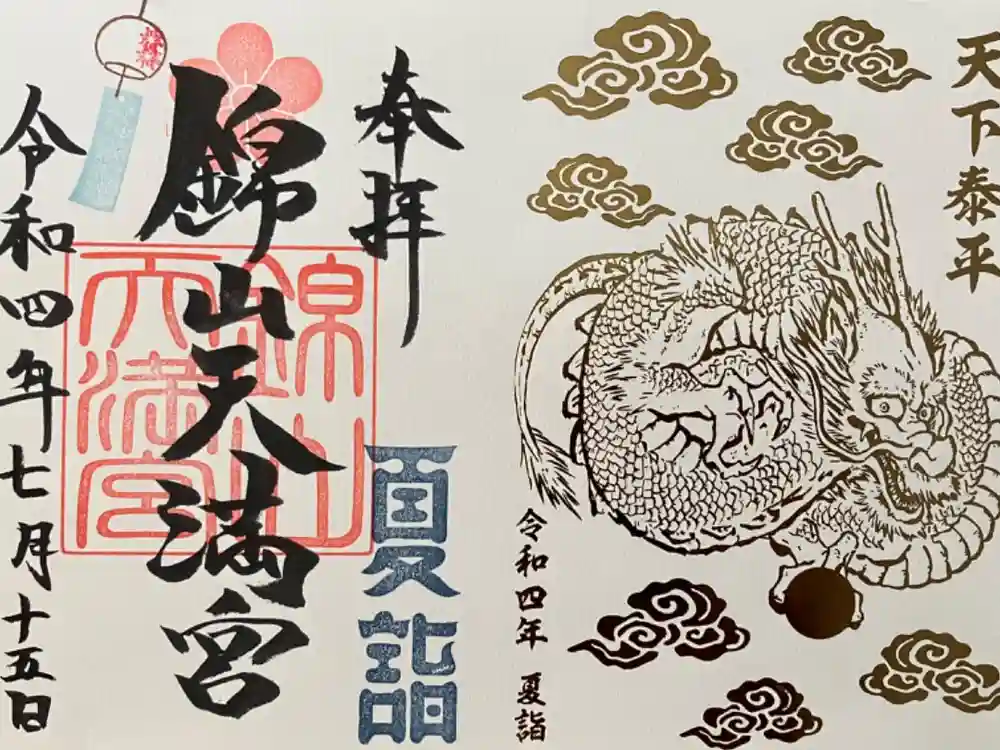 天下泰平
令和四年 夏詣
奉拝
夏詣
錦山天満宮
錦山
天満宮
令和四年七月十五日